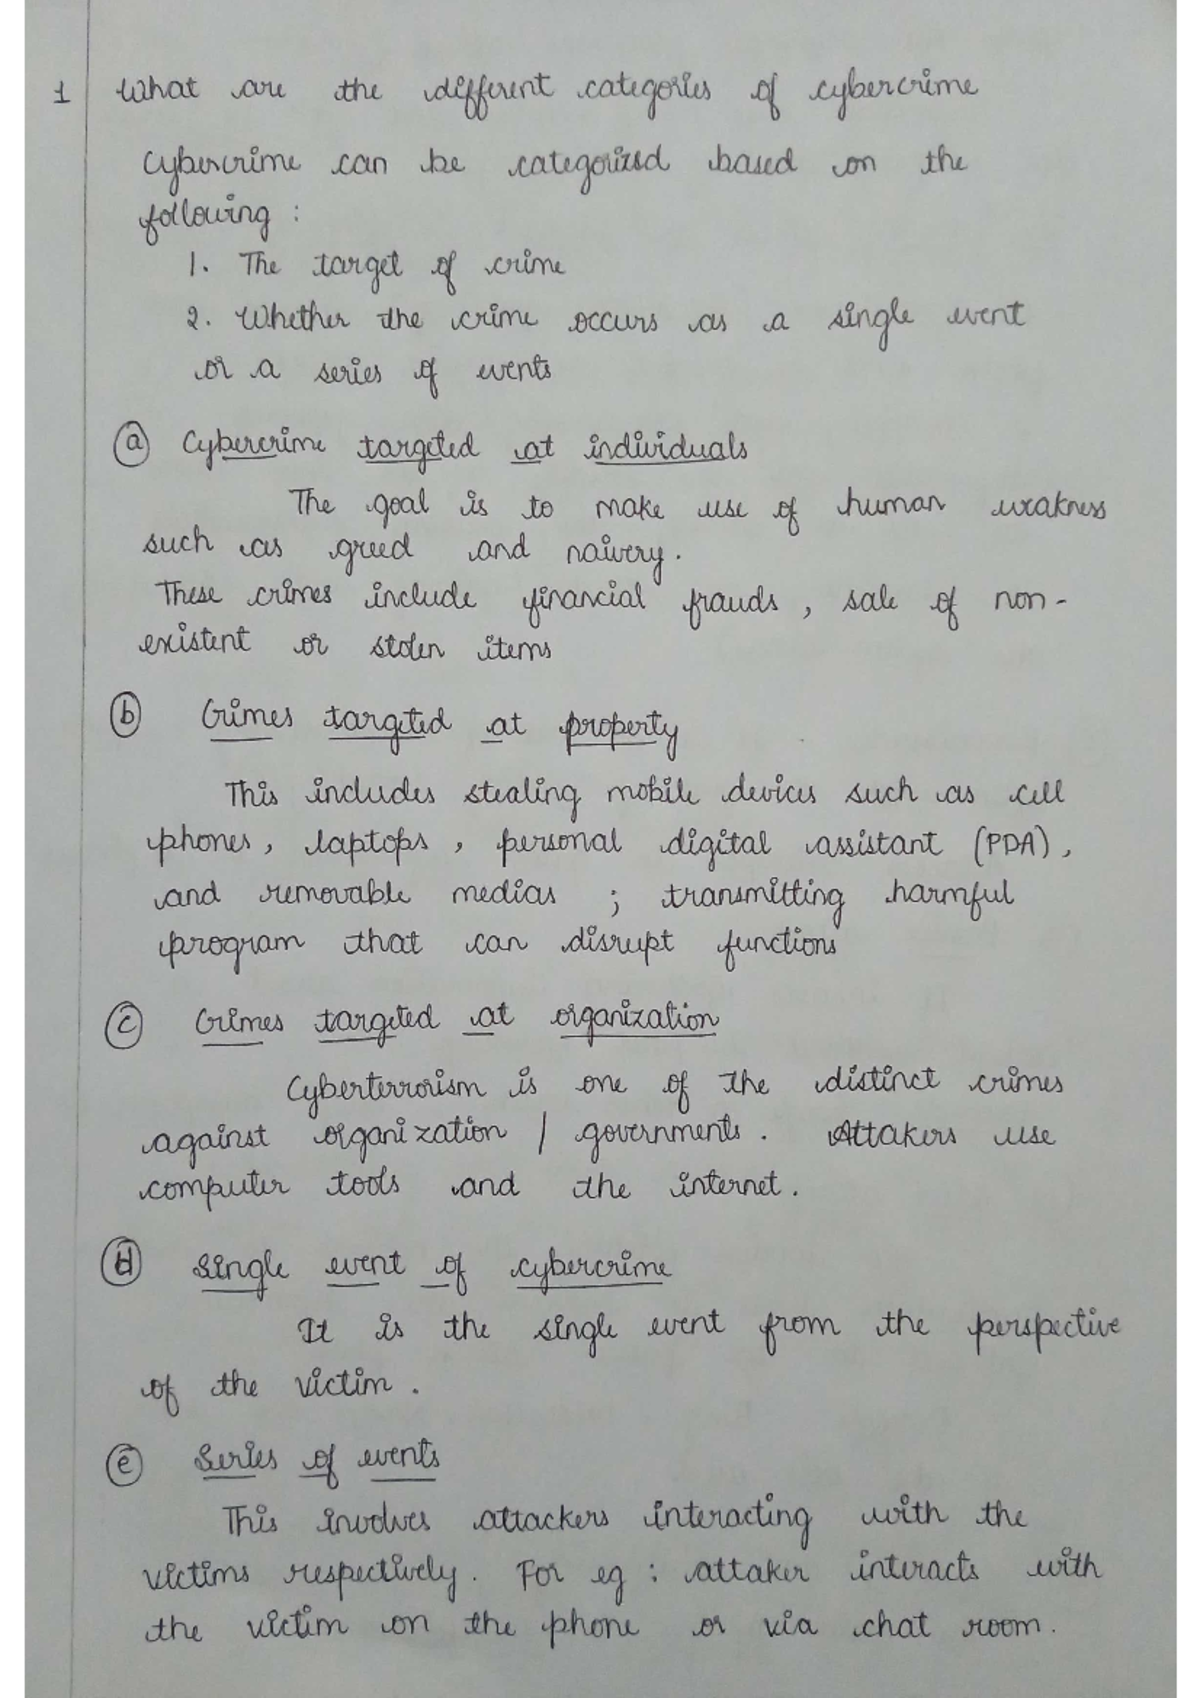 1 What are the different categories of cybercrime
Cybercrime can be categorized based on the
following :
1. The target of crime
2. Whether the crime occurs as a single event
or a series of events
(a) Cybercrime targeted at individuals
The goal is to make use of human weakness
such as greed and naivery.
These crimes include financial frauds, sale of non-
existent or stolen items
(b) Crimes targeted at property
This includes stealing mobile devices such as cell
phones, laptops, personal digital assistant (PDA),
and removable medias ; transmitting harmful
program that can disrupt functions
(c) Crimes targeted at organization
Cyberterrorism is one of the distinct crimes
against organization / governments. Attakers use
computer tools and the internet.
(d) Single event of cybercrime
It is the single event from the perspective
of the victim.
(e) Series of events
This involves attackers interacting with the
victims respectively. For eg : attaker interacts with
the victim on the phone or via chat room.